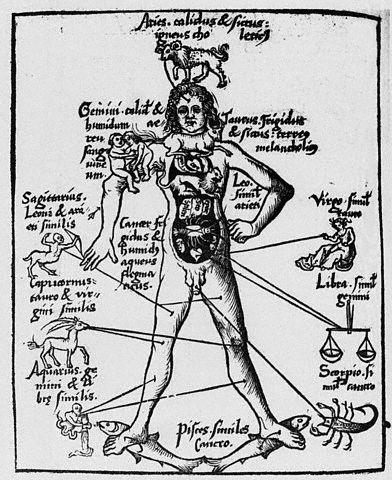 Aries. calidus & siccus.
igneus cho
lericus
Gemini. calid' &
humidum ae-
reu
sang
uine
um.
Taurus. frigidus
& siccus. terreus
melancholicus
Leo.
simil'
arieti
Sagittarius.
Leoni & ari
eti similis
Cancer fri
gidus &
humidus
aqueus
flegma
ticus.
Virgo. simil'
tauro
Capricornus.
tauro & vir-
gini similis
Libra. simil'
gemini
Aquarius. ge
mini & li
brę similis.
Scorpio. si
mil' cancro
Pisces. similes
Cancro.